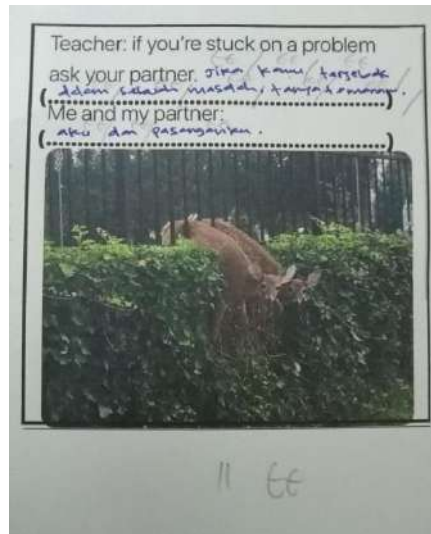 Teacher: if you're stuck on a problem
ask your partner. Jika kamu terjebak
dalam sebuah masalah, tanya temanmu.
Me and my partner:
aku dan pasanganku.